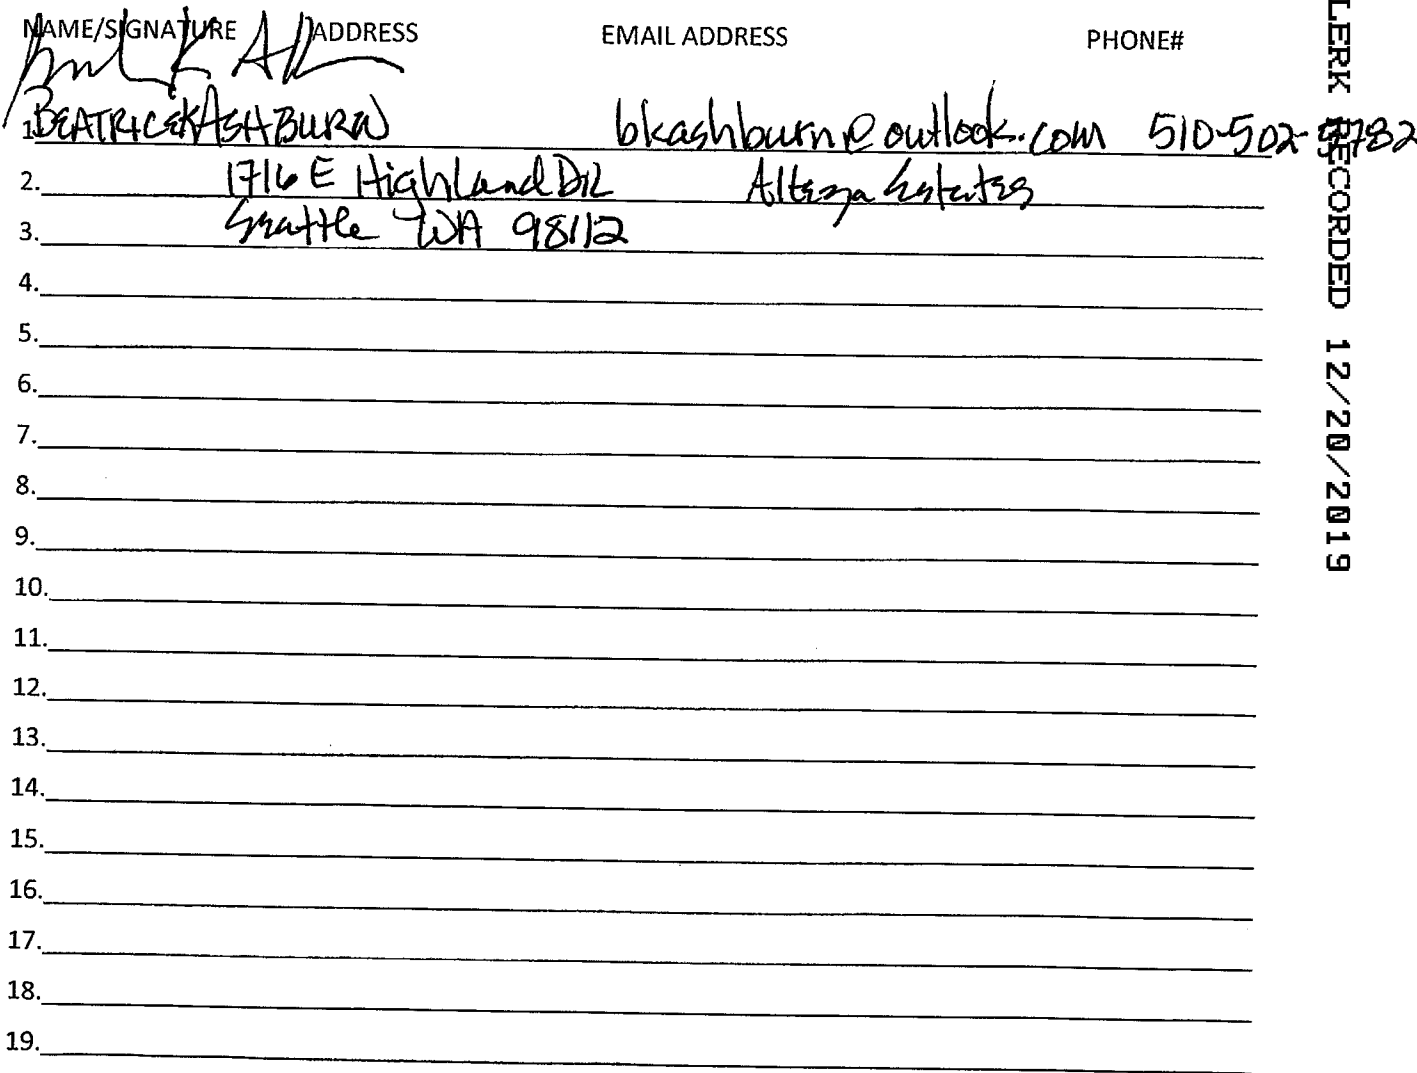 NAME/SIGNATURE ADDRESS EMAIL ADDRESS PHONE#
1. BEATRICE K ASHBURN bkashburn@outlook.com 510-502-9782
2. 1716 E Highland DR Alteza Estates
3. Seattle WA 98112
4.
5.
6.
7.
8.
9.
10.
11.
12.
13.
14.
15.
16.
17.
18.
19.
LERK RECORDED 12/20/2019